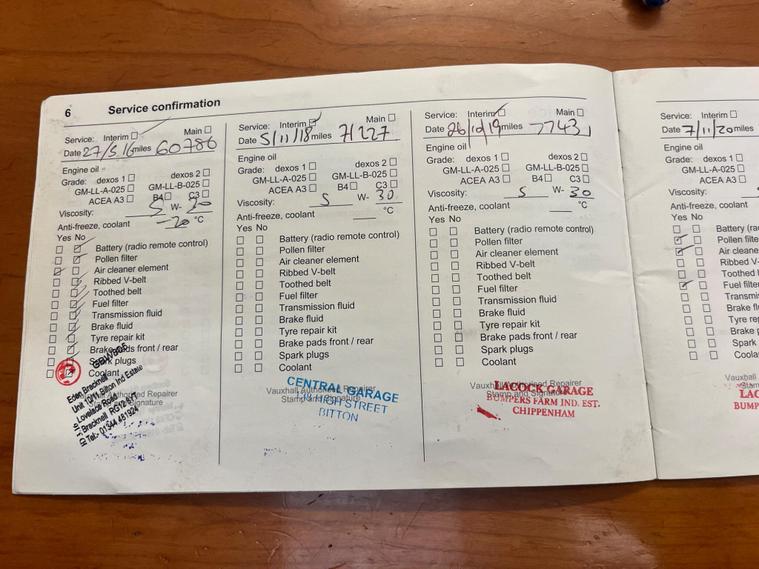 6 Service confirmation
Service: Interim Main
Date 27/5/16 miles 60786
Engine oil
Grade: dexos 1 dexos 2
GM-LL-A-025 GM-LL-B-025
ACEA A3 B4 C3
Viscosity: 5 W-
Anti-freeze, coolant -20 °C
Yes No
Battery (radio remote control)
Pollen filter
Air cleaner element
Ribbed V-belt
Toothed belt
Fuel filter
Transmission fluid
Brake fluid
Tyre repair kit
Brake pads front / rear
Spark plugs
Coolant
Eden Bracknell
Lovelace Road
Bracknell
Service: Interim Main
Date 5/11/18 miles 71227
Engine oil
Grade: dexos 1 dexos 2
GM-LL-A-025 GM-LL-B-025
ACEA A3 B4 C3
Viscosity: 5 W- 30
Anti-freeze, coolant °C
Yes No
Battery (radio remote control)
Pollen filter
Air cleaner element
Ribbed V-belt
Toothed belt
Fuel filter
Transmission fluid
Brake fluid
Tyre repair kit
Brake pads front / rear
Spark plugs
Coolant
Vauxhall Authorised Repairer
Stamp and Signature
CENTRAL GARAGE
HIGH STREET
BITTON
Service: Interim Main
Date 26/10/19 miles 77431
Engine oil
Grade: dexos 1 dexos 2
GM-LL-A-025 GM-LL-B-025
ACEA A3 B4 C3
Viscosity: 5 W- 30
Anti-freeze, coolant °C
Yes No
Battery (radio remote control)
Pollen filter
Air cleaner element
Ribbed V-belt
Toothed belt
Fuel filter
Transmission fluid
Brake fluid
Tyre repair kit
Brake pads front / rear
Spark plugs
Coolant
Vauxhall Authorised Repairer
Stamp and Signature
LACOCK GARAGE
BUMPERS FARM IND. EST.
CHIPPENHAM
Service: Interim
Date 7/11/20 miles
Engine oil
Grade: dexos 1
GM-LL-A-025
ACEA A3
Viscosity:
Anti-freeze, coolant
Yes No
Battery (ra
Pollen filte
Air cleane
Ribbed V-
Toothed b
Fuel filter
Transmi
Brake fl
Tyre re
Brake p
Spark
Coola
Vauxhall
Stam
LAC
BUMP